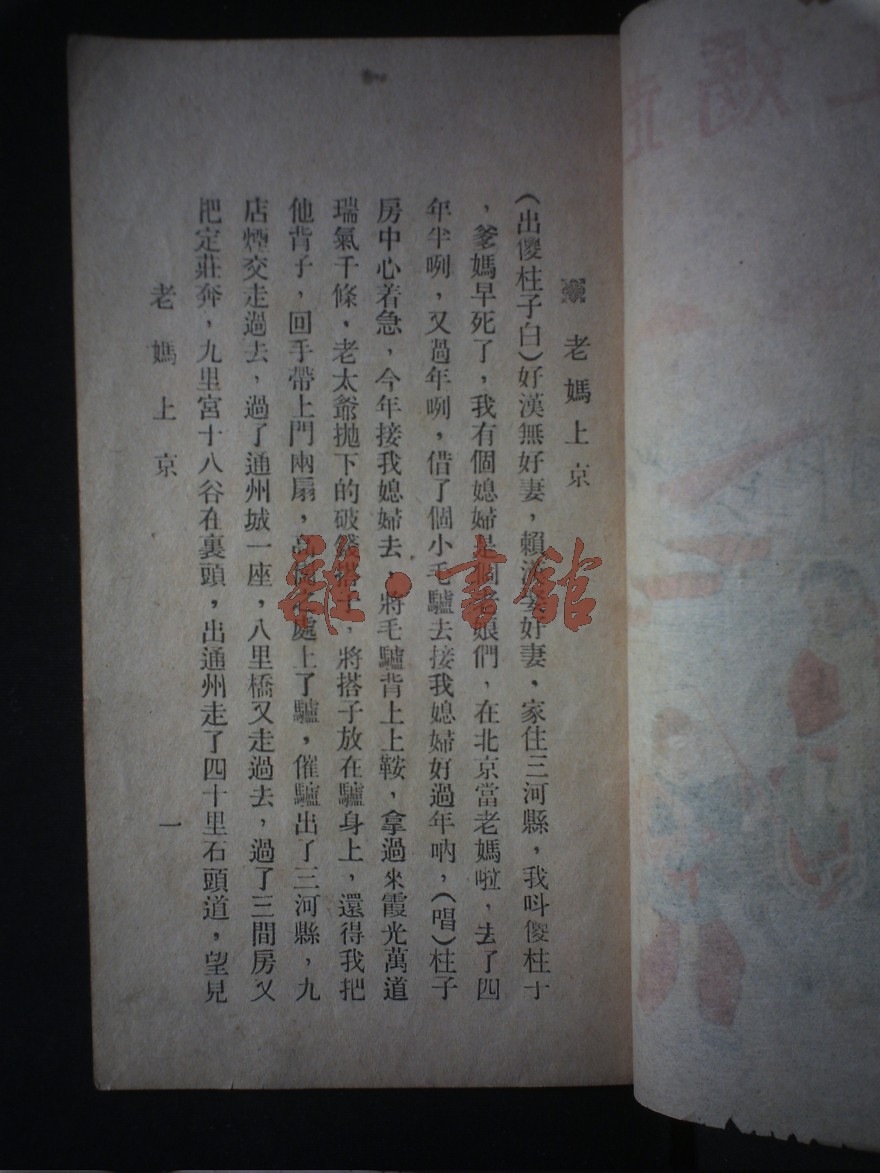 老媽上京
(出傻柱子白)好漢無好妻，賴漢娶好妻，家住三河縣，我呌傻柱子
，爹媽早死了，我有個媳婦是個老娘們，在北京當老媽啦，去了四
年半咧，又過年咧，借了個小毛驢去接我媳婦好過年吶，(唱)柱子
房中心着急，今年接我媳婦去，將毛驢背上上鞍，拿過來霞光萬道
瑞氣千條，老太爺拋下的破錢搭子，將搭子放在驢身上，還得我把
他背子，回手帶上門兩扇，高處上了驢，催驢出了三河縣，九
店煙交走過去，過了通州城一座，八里橋又走過去，過了三間房又
把定莊奔，九里宮十八谷在裏頭，出通州走了四十里石頭道，望見
老媽上京
一
雜·書館